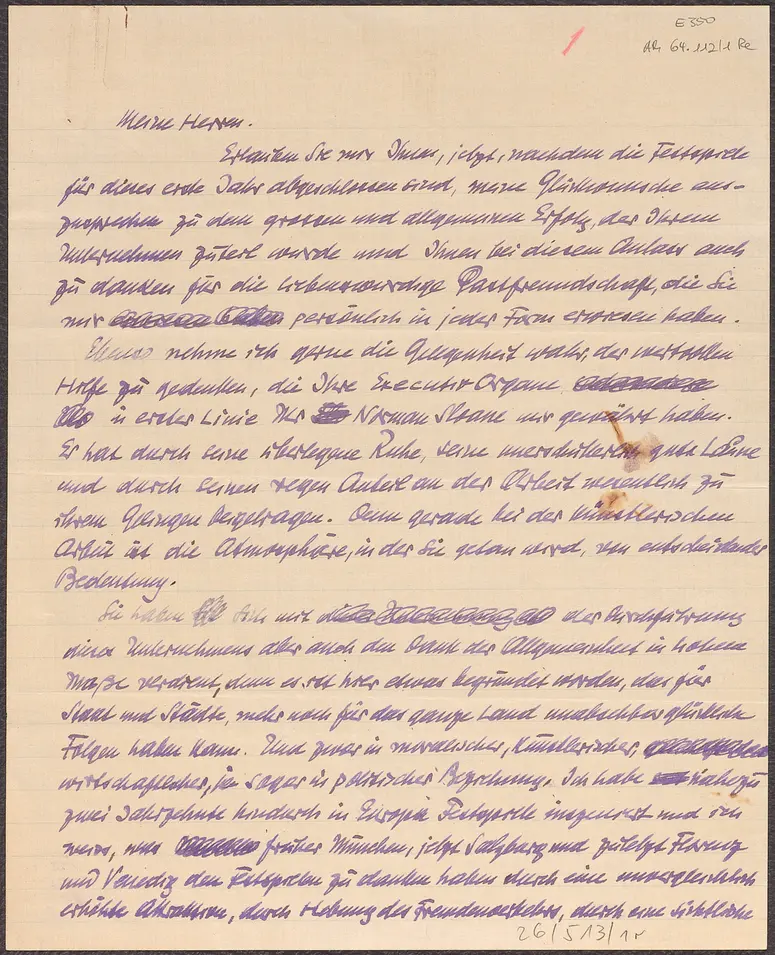 E 350
AR 64.112/1 Re
1
Meine Herren.
Erlauben Sie mir Ihnen, jetzt, nachdem die Festspiele
für dieses erste Jahr abgeschlossen sind, meine Glückwünsche aus-
zusprechen zu dem grossen und allgemeinen Erfolg, der Ihrem
Unternehmen zuteil wurde und Ihnen bei diesem Anlass auch
zu danken für die liebenswürdige Gastfreundschaft, die Sie
mir persönlich in jeder Form erwiesen haben.
Ebenso nehme ich gerne die Gelegenheit wahr, der wertvollen
Hilfe zu gedenken, die Ihre Executiv-Organe
in erster Linie Mr Norman Sloane mir gewährt haben.
Er hat durch seine überlegene Ruhe, seine unerschütterlich gute Laune
und durch seinen regen Anteil an der Arbeit wesentlich zu
ihrem Gelingen beigetragen. Denn gerade bei der künstlerischen
Arbeit ist die Atmosphäre, in der Sie getan wird, von entscheidender
Bedeutung.
Sie haben Sich mit der Durchführung
dieses Unternehmens aber auch den Dank der Allgemeinheit in hohem
Maße verdient, denn es ist hier etwas begründet worden, das für
Staat und Städte, mehr noch für das ganze Land unabsehbar glückliche
Folgen haben kann. Und zwar in moralischer, künstlerischer,
wirtschaftlicher, ja sogar in politischer Beziehung. Ich habe nahezu
zwei Jahrzehnte hindurch in Europa Festspiele inszeniert und ich
weiss, was früher München, jetzt Salzburg und zuletzt Florenz
und Venedig den Festspielen zu danken haben durch eine unvergleichlich
erhöhte Attraktion, durch Hebung des Fremdenverkehrs, durch eine sichtliche
26/513/1r